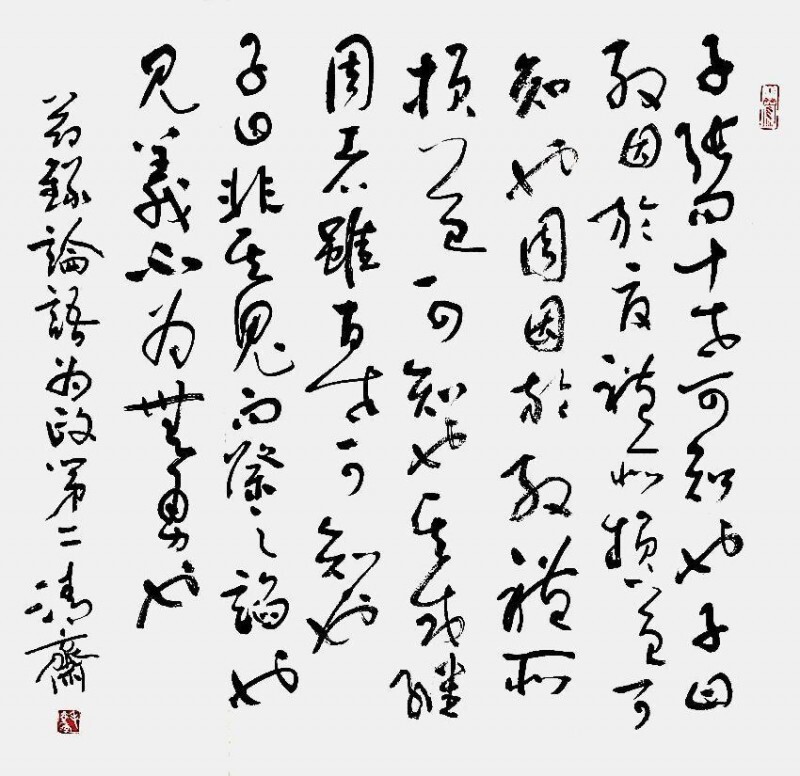 子張問十世可知也子曰
殷因於夏禮所損益可
知也周因於殷禮所
損益可知也其或繼
周者雖百世可知也
子曰非其鬼而祭之諂也
見義不为無勇也
節録論語为政第二齋